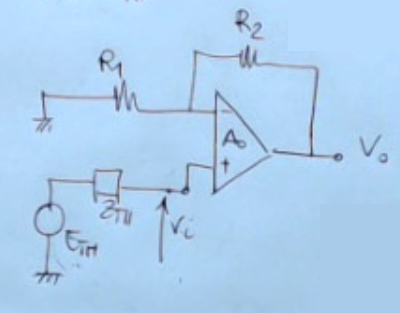 R2
R1
- A0
+
V0
ZTH
Vi
ETH